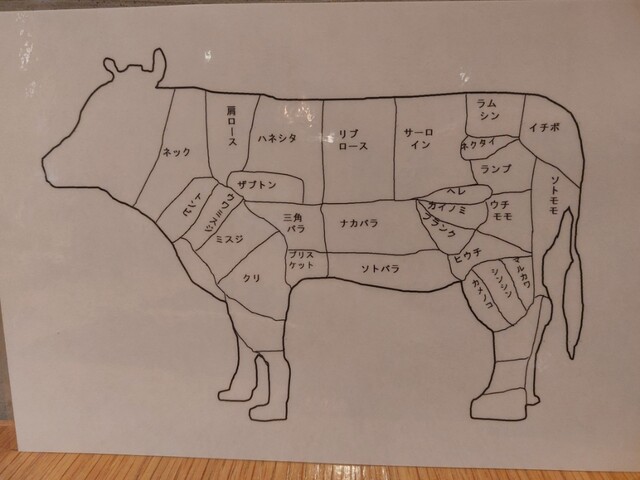 ネック
肩ロース
ハネシタ
リブ
ロース
サーロ
イン
ラム
シン
イチボ
ネクタイ
ランプ
ザブトン
ヘレ
ソトモモ
トンビ
ウワミスジ
カイノミ
ウチ
モモ
三角
バラ
ナカバラ
フランク
ミスジ
ブリス
ケット
ソトバラ
ヒウチ
クリ
カメノコ
シンシン
マルカワ